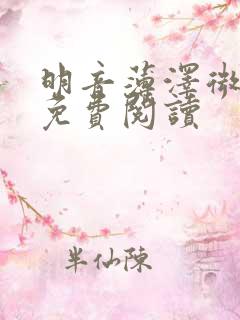 明音薄澤微
免費閱讀
半仙陳